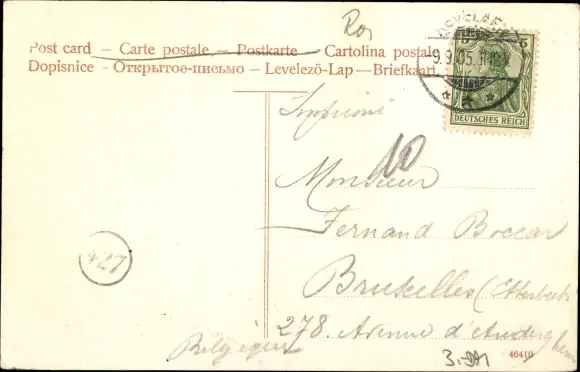 Post card — Carte postale — Postkarte — Cartolina postale
Dopisnice — Открытое-письмо — Levelezö-Lap — Briefkaart
9.9.05
DEUTSCHES REICH
Imprimé
10
Monsieur
Fernand Boccar
Bruxelles (Etterbeek
278 Avenue d'Auderghem
Belgique
46410